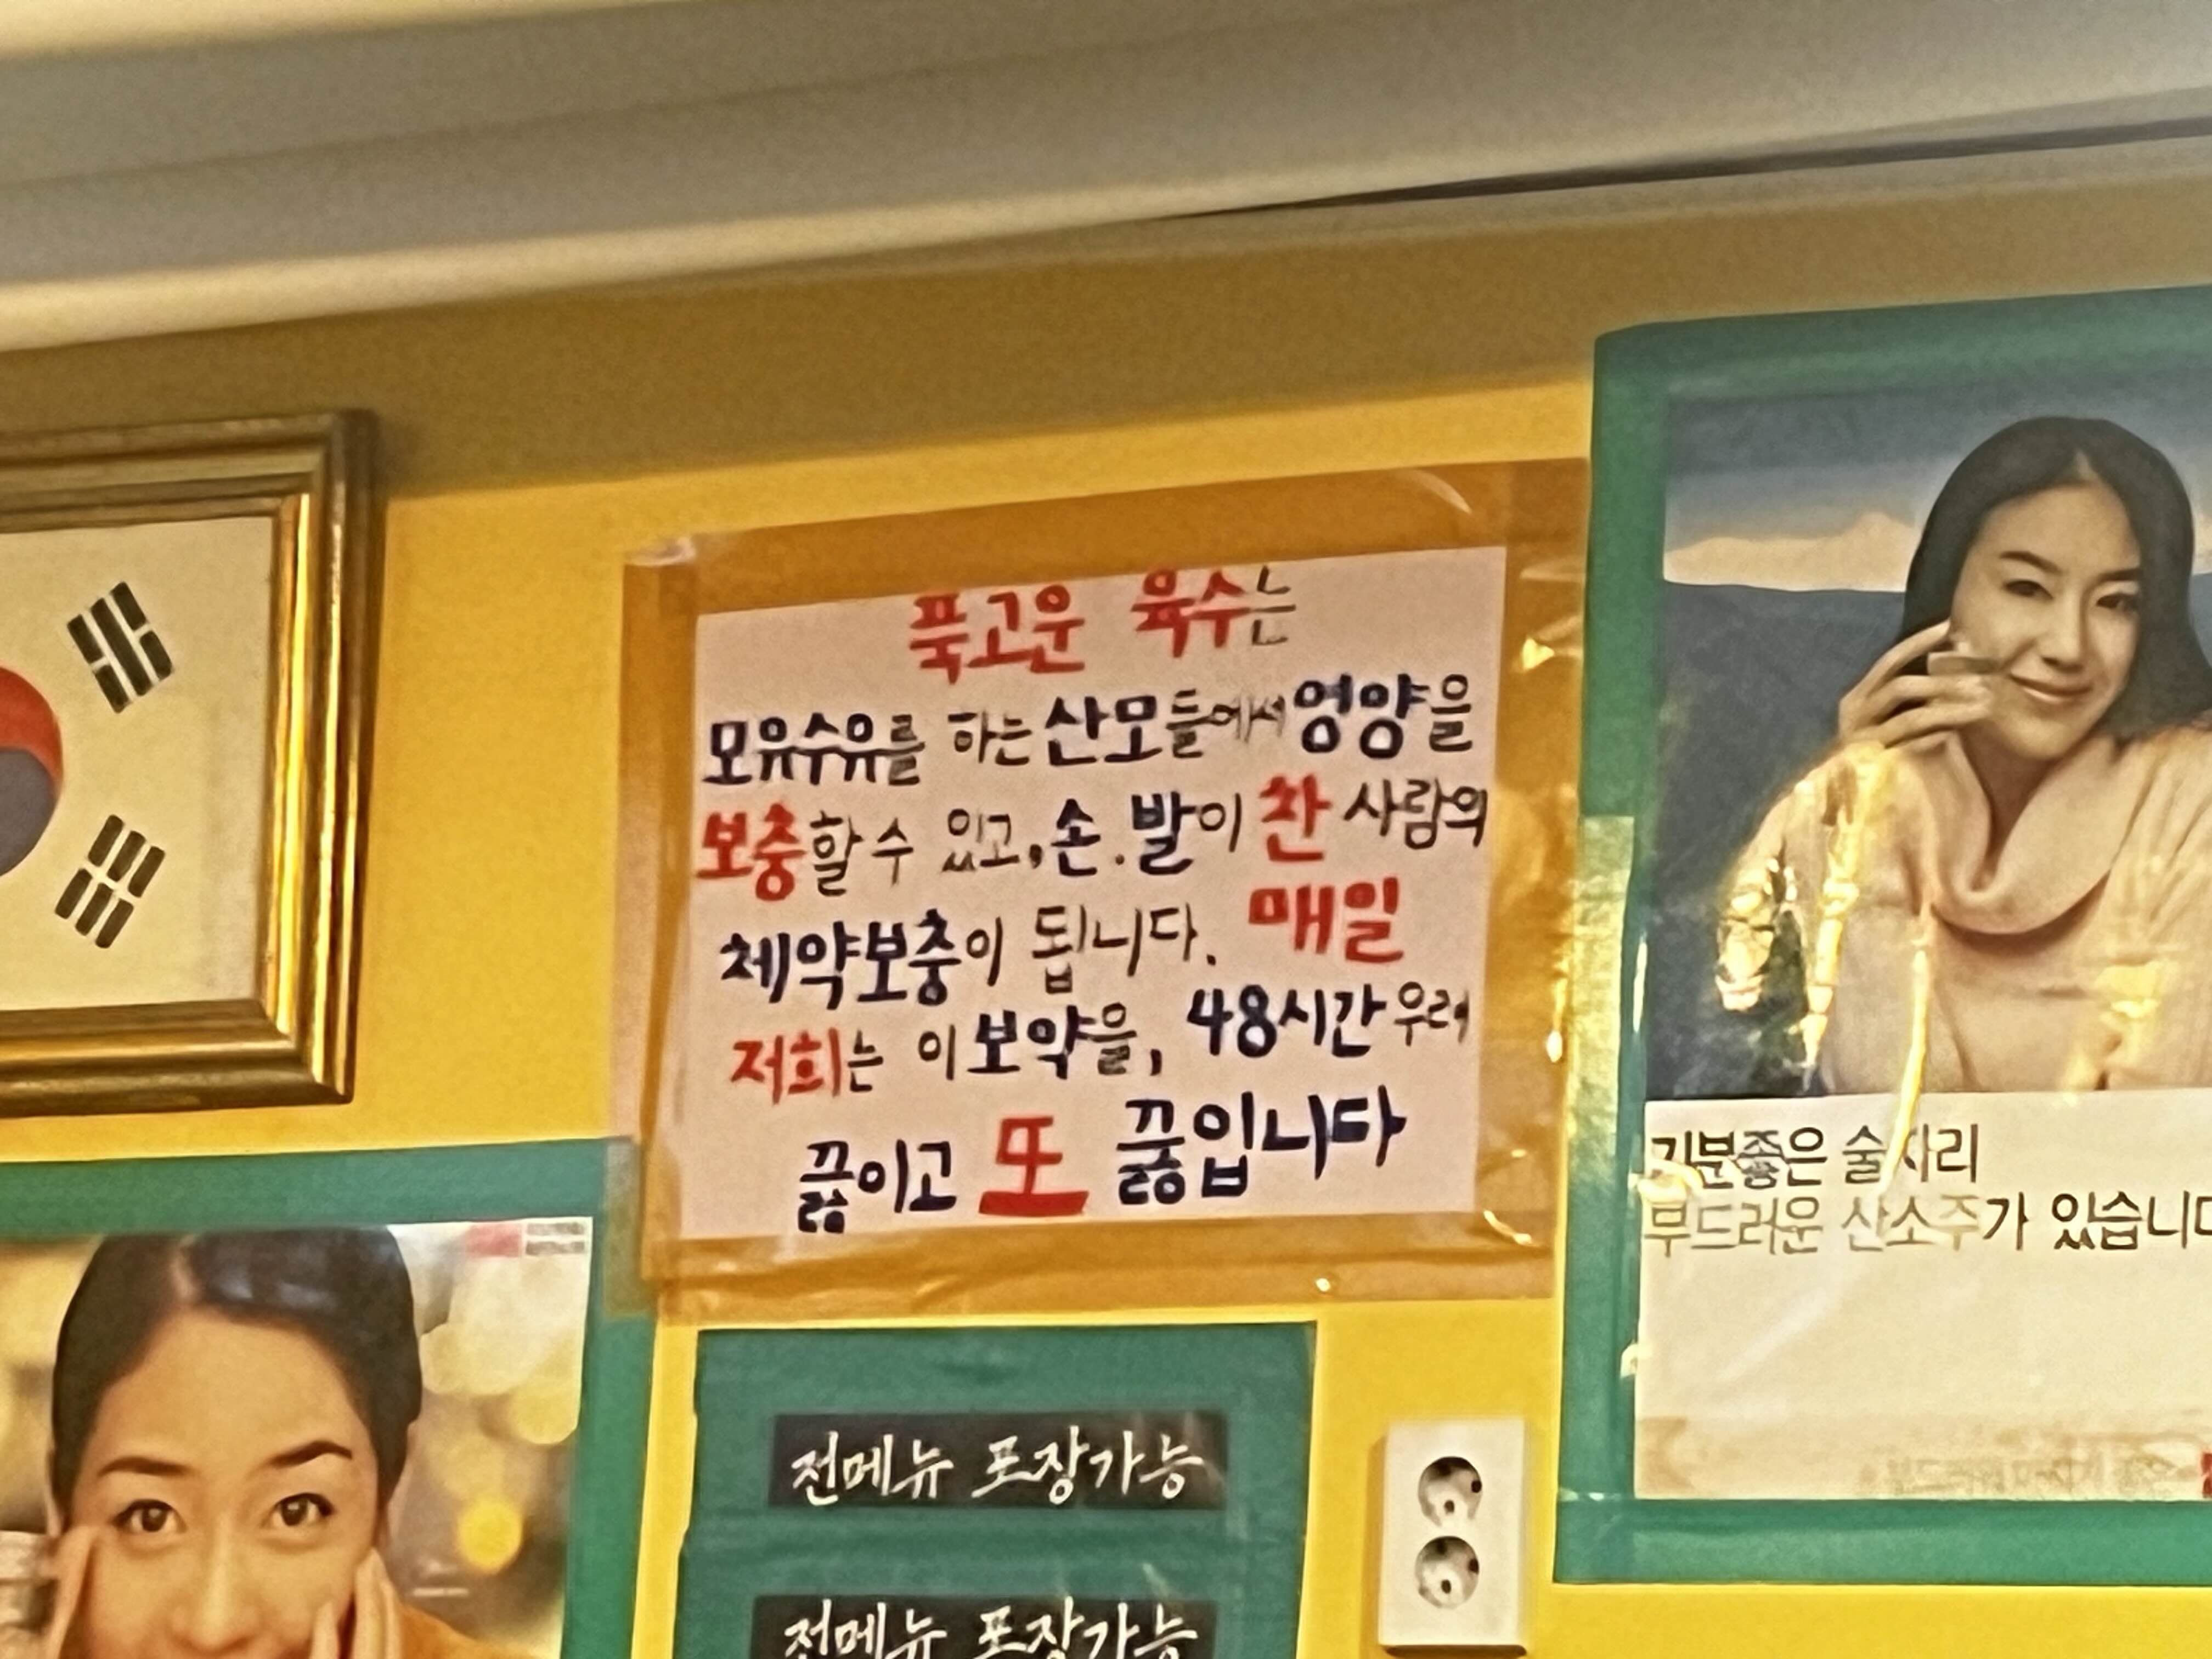 푹고운 육수는
모유수유를 하는 산모들에서 영양을
보충할 수 있고, 손.발이 찬 사람의
체약보충이 됩니다. 매일
저희는 이 보약을, 48시간 우려
끓이고 또 끓입니다
전메뉴 포장가능
전메뉴 포장가능
기분좋은 술자리
부드러운 산소주가 있습니다